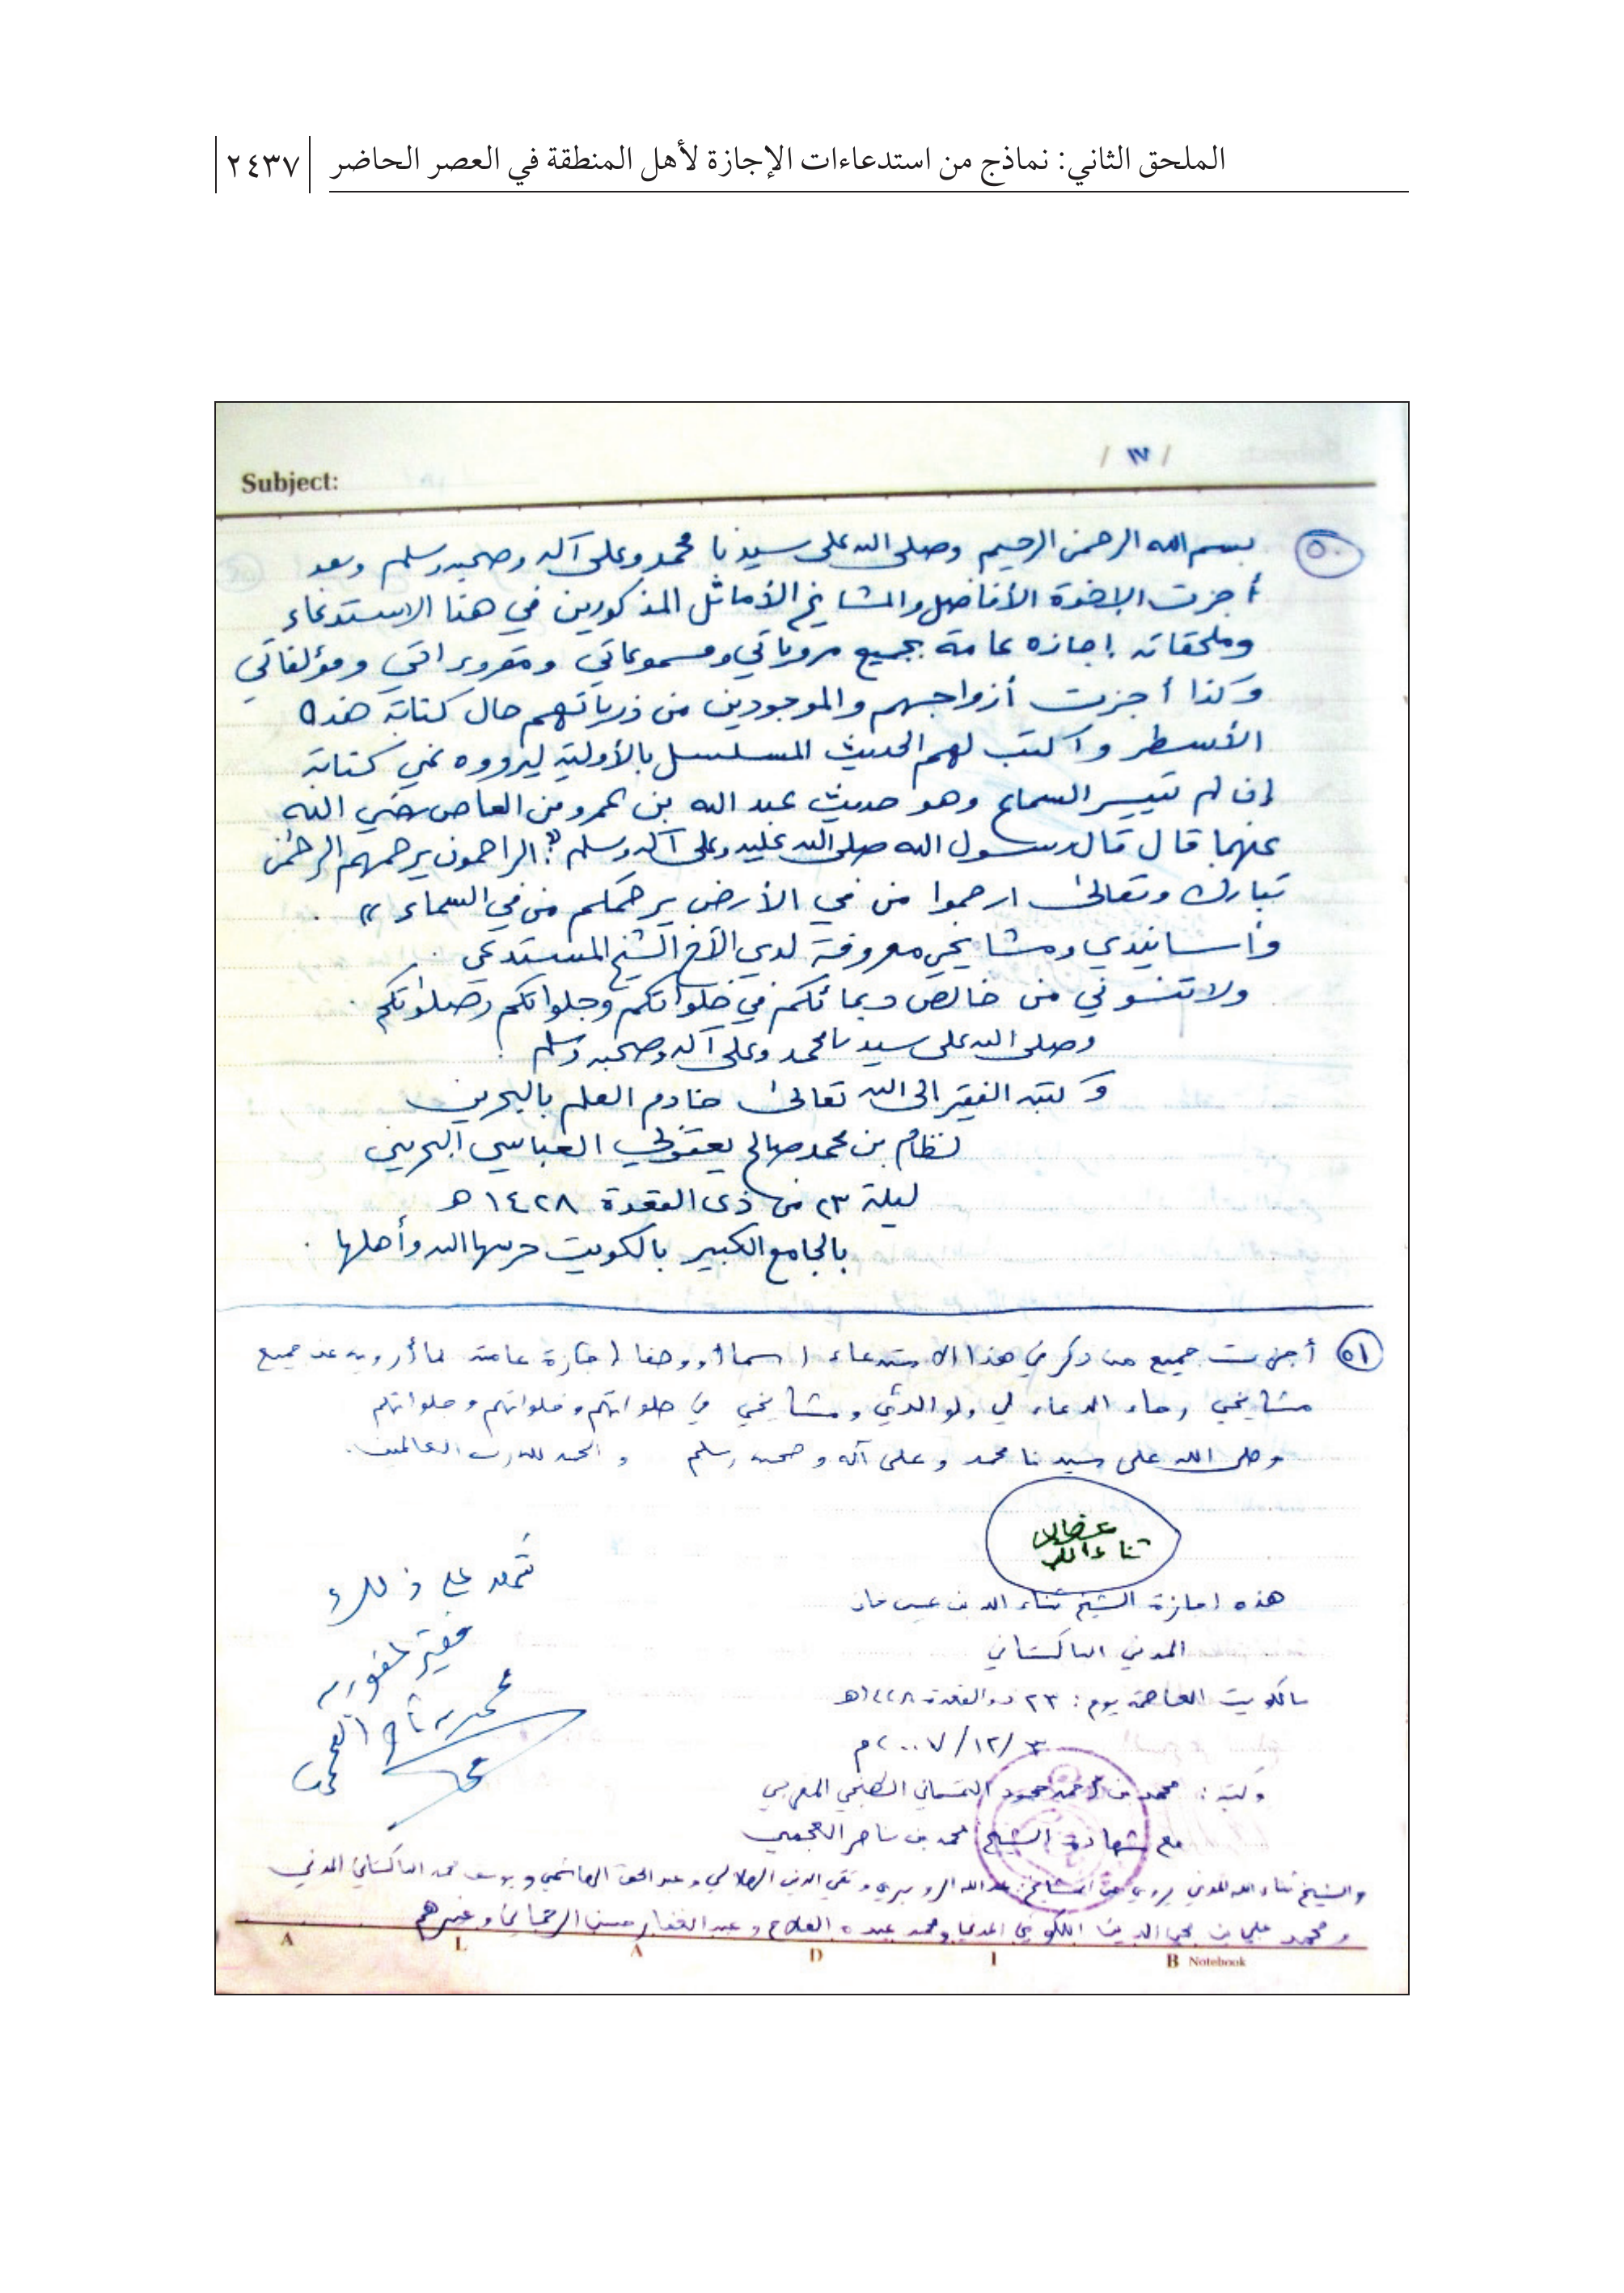 الملحق الثاني: نماذج من استدعاءات الإجازة لأهل المنطقة في العصر الحاضر
٢٤٣٧
/ ١٧ /
Subject:
٥٠
بسم الله الرحمن الرحيم وصلى الله على سيدنا محمد وعلى آله وصحبه وسلم وبعد
أجزت الإخوة الأفاضل والمشايخ الأماثل المذكورين في هذا الاستدعاء
وملحقاته إجازة عامة بجميع مروياتي ومسموعاتي ومقروءاتي ومؤلفاتي
وكذا أجزت أزواجهم والموجودين من ذرياتهم حال كتابة هذه
الأسطر وأكتب لهم الحديث المسلسل بالأولية ليرووه عني كتابة
إن لم تيسر السماع وهو حديث عبد الله بن عمرو بن العاص رضي الله
عنهما قال قال رسول الله صلى الله عليه وعلى آله وسلم: "الراحمون يرحمهم الرحمن
تبارك وتعالى ارحموا من في الأرض يرحمكم من في السماء" .
وأسانيدي ومشايخي معروفة لدى الأخ الشيخ المستدعي .
ولا تنسوني من خالص دعائكم في خلواتكم وجلواتكم وصلواتكم .
وصلى الله على سيدنا محمد وعلى آله وصحبه وسلم .
وكتبه الفقير إلى الله تعالى خادم العلم بالبحرين
نظام بن محمد صالح يعقوبي العباسي البحريني
ليلة ٢٣ من ذى القعدة ١٤٢٨ هـ
بالجامع الكبير بالكويت حرسها الله وأهلها .
٥١
أجزت جميع من ذكر في هذا الاستدعاء اسما أو وصفا إجازة عامة لما أرويه عن جميع
مشايخي رجاء الدعاء لي ولوالدي ومشايخي في صلواتهم وخلواتهم وجلواتهم
وصلى الله على سيدنا محمد وعلى آله وصحبه وسلم والحمد لله رب العالمين.
ثناء الله
هذه إجازة الشيخ ثناء الله بن عيسى خان
المدني الباكستاني
بالكويت العاصمة يوم: ٢٣ ذو القعدة ١٤٢٨هـ
٣/١٢/٢٠٠٧م
وكتبه: محمد بن أحمد محمود التمسماني الطنجي المغربي
مع شهادة الشيخ محمد بن ناصر العجمي
والشيخ ثناء الله المدني يروي عن المشايخ: عبد الله الروبري وتقي الدين الهلالي وعبد الحق الهاشمي ويوسف محمد الباكستاني المدني
ومحمد علي بن محي الدين اللكوي المدني ومحمد عبده الفلاح وعبد الغفار حسن الرحماني وغيرهم
شهد على ذلك
فقير عفو ربه
محمد بن ناصر العجمي
A L A D I B Notebook